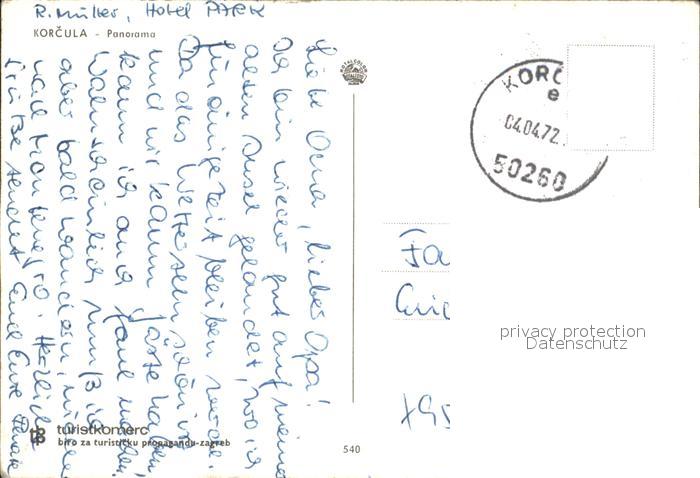 R. Müller, Hotel PARK
KORČULA - Panorama
Liebe Oma, lieber Opa!
Ich bin wieder gut auf meiner
alten Insel gelandet, wo ich
für einige Zeit bleiben werde.
Da das Wetter sehr schön ist
und wir kaum Gäste haben,
kann ich auch faul
Wahrscheinlich muß ich
aber bald
nach Montenegro. Herzliche
Grüße sendet Euch Eure
turistkomerc
biro za turističku propagandu-zagreb
540
KORČ
04.04.72.
50260
Fa
privacy protection
Datenschutz